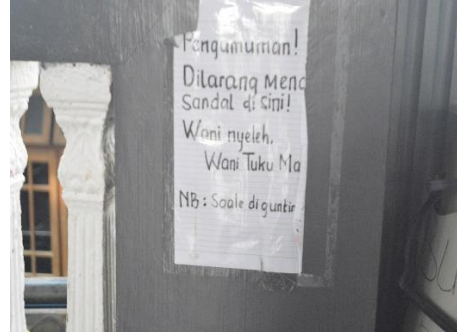 Pengumuman!
Dilarang Menc
Sandal di sini!
Wani nyeleh,
Wani Tuku Ma
NB: Soale diguntin